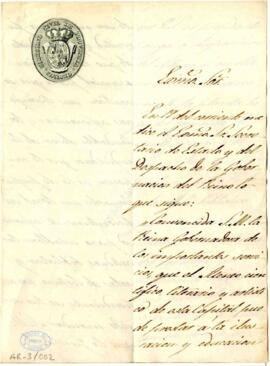 Exmo. Sor.
En 1º del corriente me
dice el Exmo. Sr. Secre
tario de Estado y del
Despacho de la Gober
nacion del Reino lo
que sigue:
Convencida S.M. la
Reina Gobernadora de
los importantes servi
cios, que el Ateneo cien
tifico literario y artisti
co de esta Capital pue
de prestar a la ilus
tracion y educacion
AR-3/002